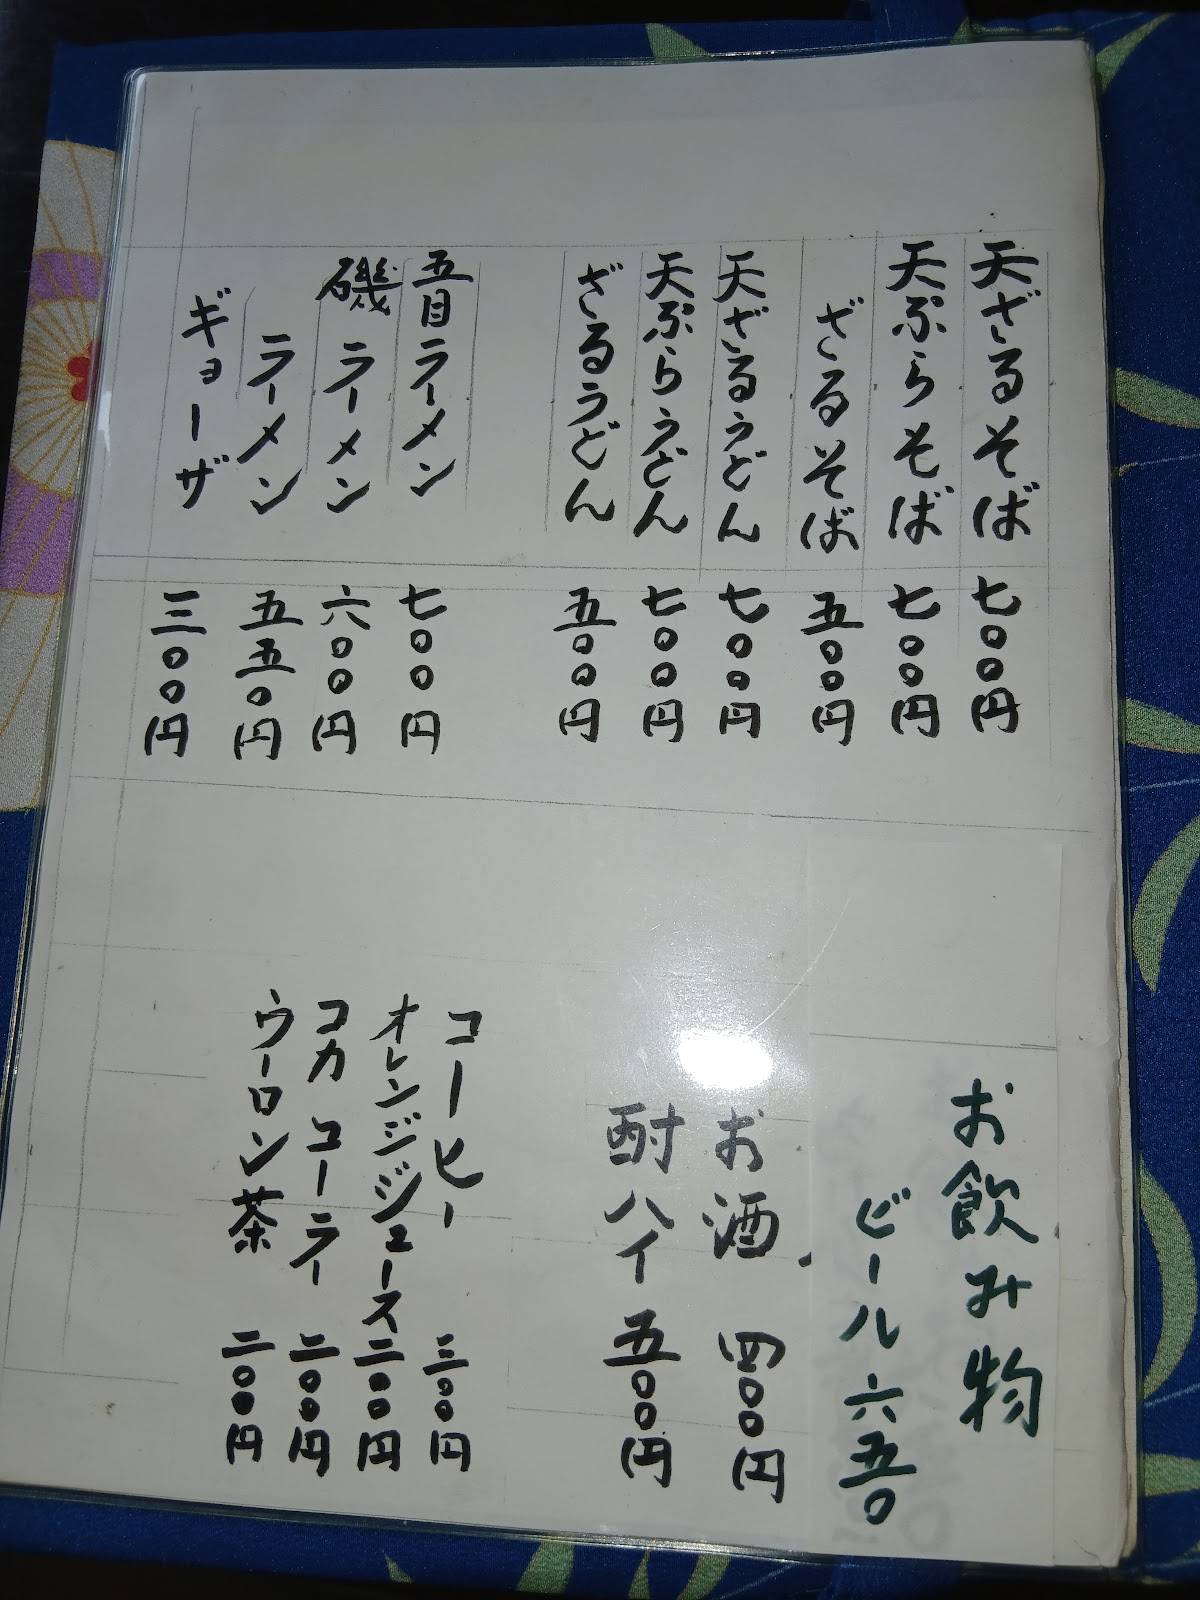 天ざるそば 七〇〇円
天ぷらそば 七〇〇円
ざるそば 五〇〇円
天ざるうどん 七〇〇円
天ぷらうどん 七〇〇円
ざるうどん 五〇〇円
五目ラーメン 七〇〇円
磯ラーメン 六〇〇円
ラーメン 五五〇円
ギョーザ 三〇〇円
お飲み物
ビール 六五〇
お酒 四〇〇円
酎ハイ 五〇〇円
コーヒー 三〇〇円
オレンジジュース 二〇〇円
コカコーラ 二〇〇円
ウーロン茶 二〇〇円